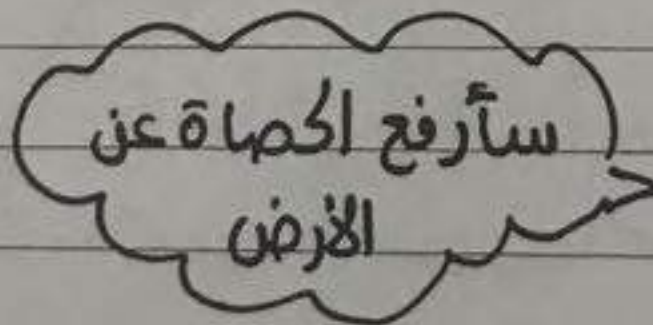 سأرفع الحصاة عن
الأرض